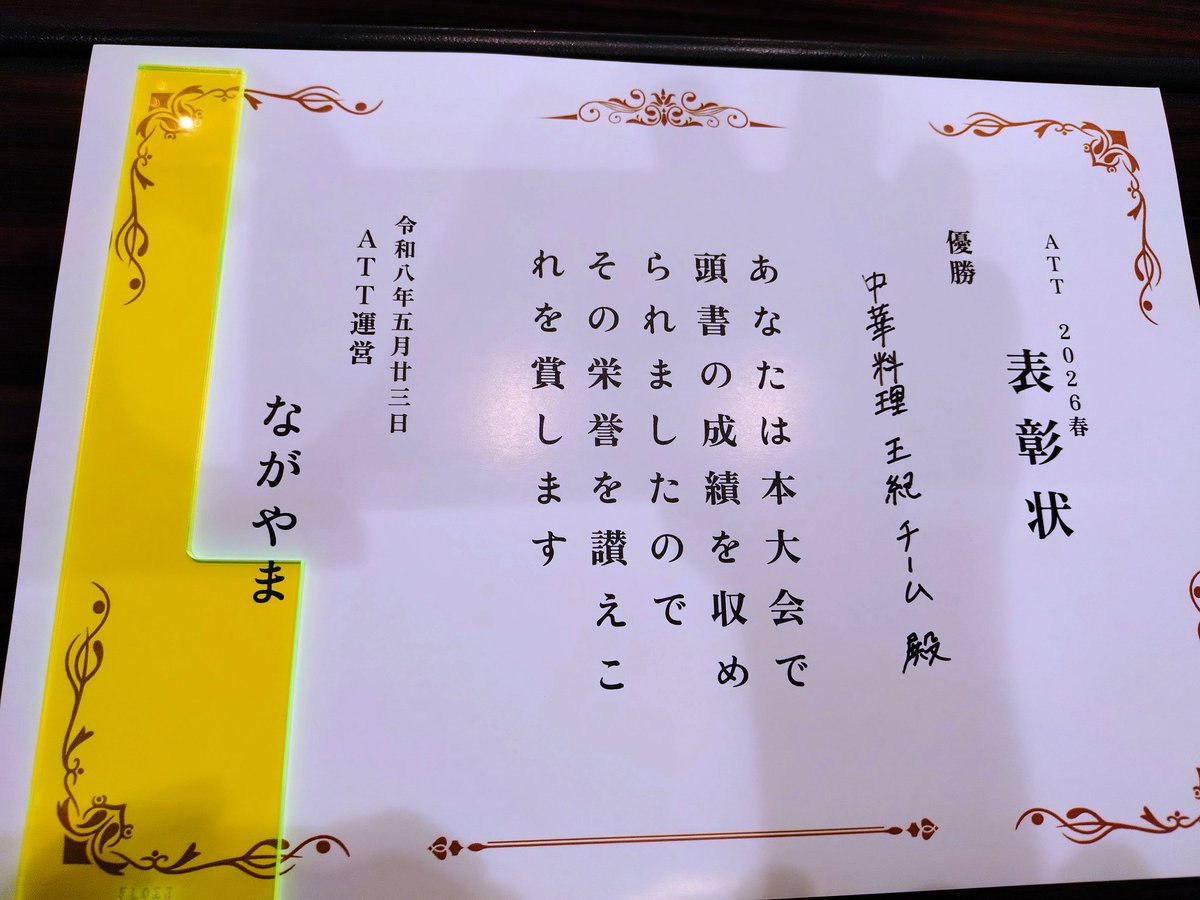 ATT 2026春
表彰状
優勝
中華料理 王紀 チーム 殿
あなたは本大会で
頭書の成績を収め
られましたので
その栄誉を讃えこ
れを賞します
令和八年五月廿三日
ATT運営
ながやま